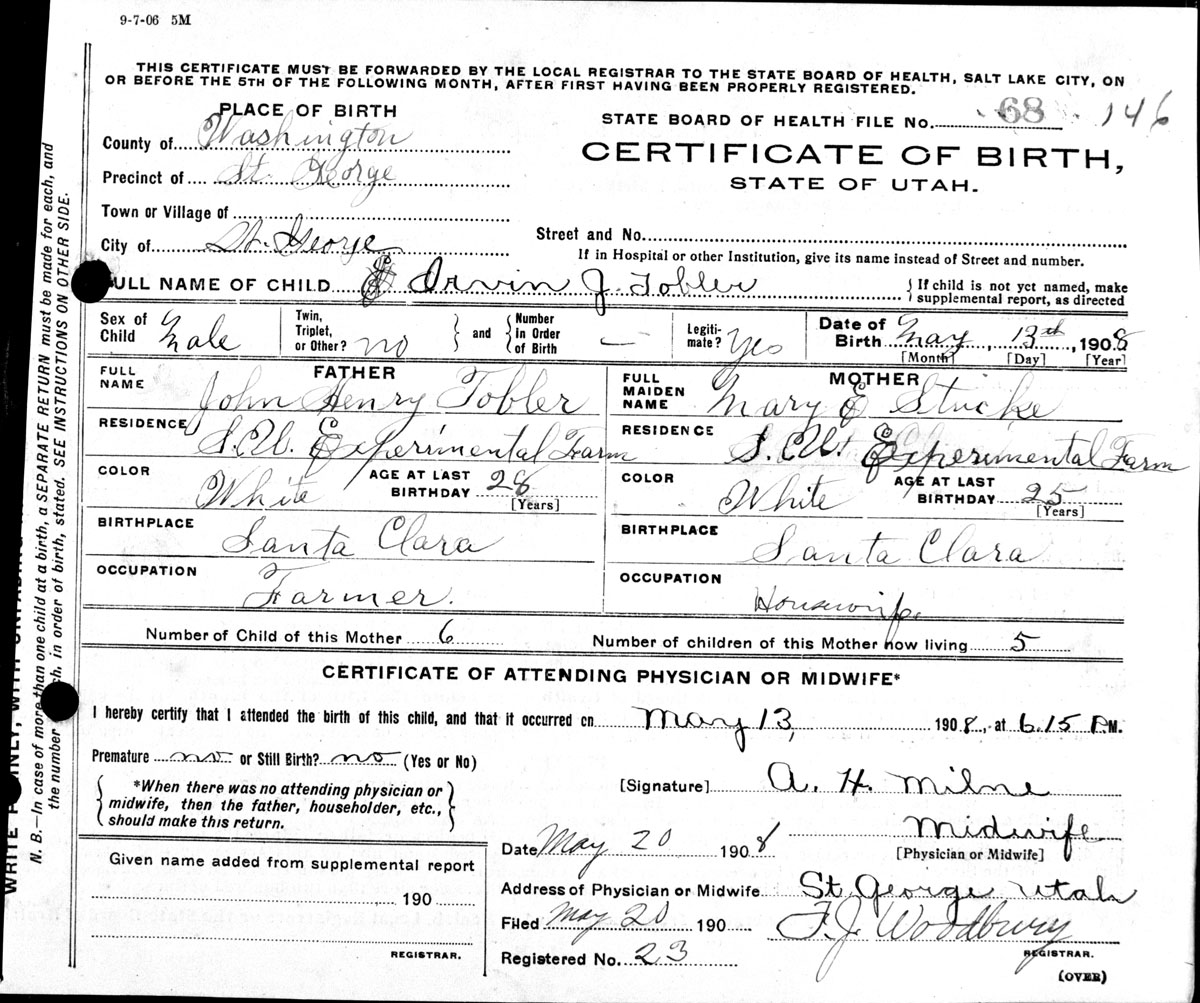 9-7-06 5M
THIS CERTIFICATE MUST BE FORWARDED BY THE LOCAL REGISTRAR TO THE STATE BOARD OF HEALTH, SALT LAKE CITY, ON
OR BEFORE THE 5TH OF THE FOLLOWING MONTH, AFTER FIRST HAVING BEEN PROPERLY REGISTERED.
PLACE OF BIRTH
County of Washington
Precinct of St. George
Town or Village of
City of St. George
STATE BOARD OF HEALTH FILE No. 68 146
CERTIFICATE OF BIRTH,
STATE OF UTAH.
Street and No.
If in Hospital or other Institution, give its name instead of Street and number.
ULL NAME OF CHILD Orvin J. Tobler
If child is not yet named, make
supplemental report, as directed
Sex of Child Male
Twin, Triplet, or Other? no
and
Number in Order of Birth —
Legiti-mate? Yes
Date of Birth May, 13th, 1908
[Month] [Day] [Year]
FATHER
FULL NAME John Henry Tobler
RESIDENCE S. Ut. Experimental Farm
COLOR White
AGE AT LAST BIRTHDAY 28
[Years]
BIRTHPLACE Santa Clara
OCCUPATION Farmer.
MOTHER
FULL MAIDEN NAME Mary E Stucke
RESIDENCE S. Ut. Experimental Farm
COLOR White
AGE AT LAST BIRTHDAY 25
[Years]
BIRTHPLACE Santa Clara
OCCUPATION Housewife
Number of Child of this Mother 6
Number of children of this Mother now living 5
CERTIFICATE OF ATTENDING PHYSICIAN OR MIDWIFE*
I hereby certify that I attended the birth of this child, and that it occurred on May 13, 1908, at 6.15 P.M.
Premature no or Still Birth? no (Yes or No)
*When there was no attending physician or
midwife, then the father, householder, etc.,
should make this return.
[Signature] A. H. Milne
Midwife
[Physician or Midwife]
Date May 20 1908
Address of Physician or Midwife St. George Utah
Filed May 20 190
F. J. Woodbury
REGISTRAR.
Registered No. 23
(OVER)
Given name added from supplemental report
190
REGISTRAR.
N. B.—In case of more than one child at a birth, a SEPARATE RETURN must be made for each, and
the number ch, in order of birth, stated. SEE INSTRUCTIONS ON OTHER SIDE.